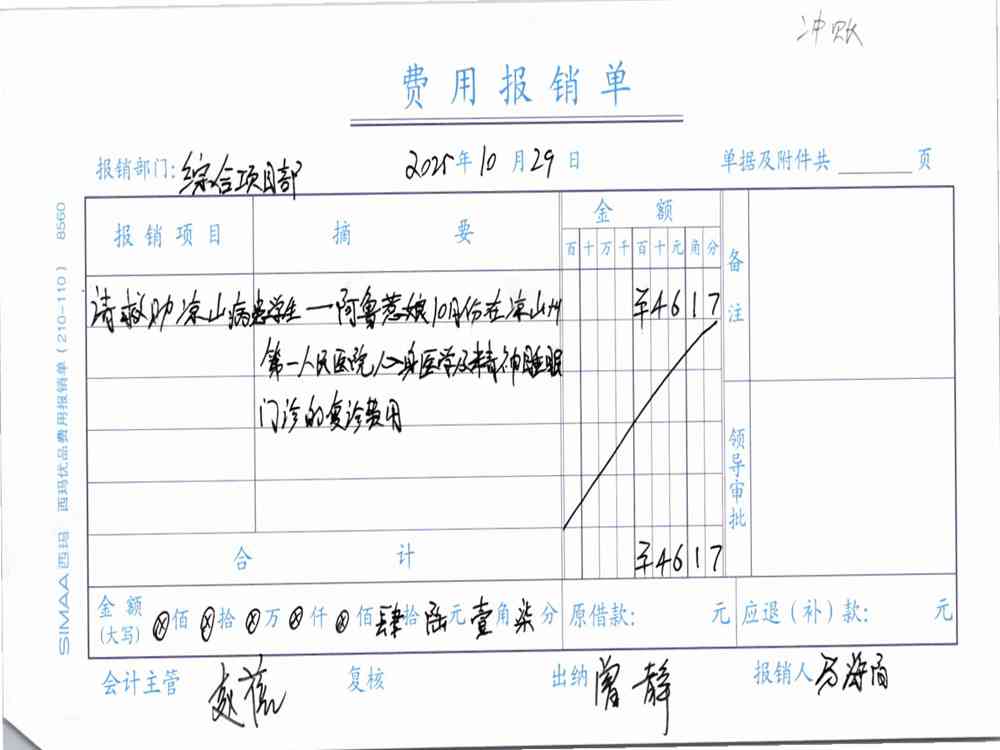 冲账
费用报销单
报销部门: 综合项目部 2025年10月29日 单据及附件共 页
报销项目 摘要 金额 备注
百 十 万 千 百 十 元 角 分
请救助凉山病患学生一阿鲁惹娘10月份在凉山州 ¥4617
第一人民医院心身医学及精神睡眠
门诊的复诊费用
领导审批
合计 ¥4617
金额(大写) ⊗佰⊗拾⊗万⊗仟⊗佰肆拾陆元壹角柒分 原借款: 元 应退(补)款: 元
会计主管 复核 出纳 曾静 报销人
SIMAA 西玛 西玛优品费用报销单(210-110) 8560